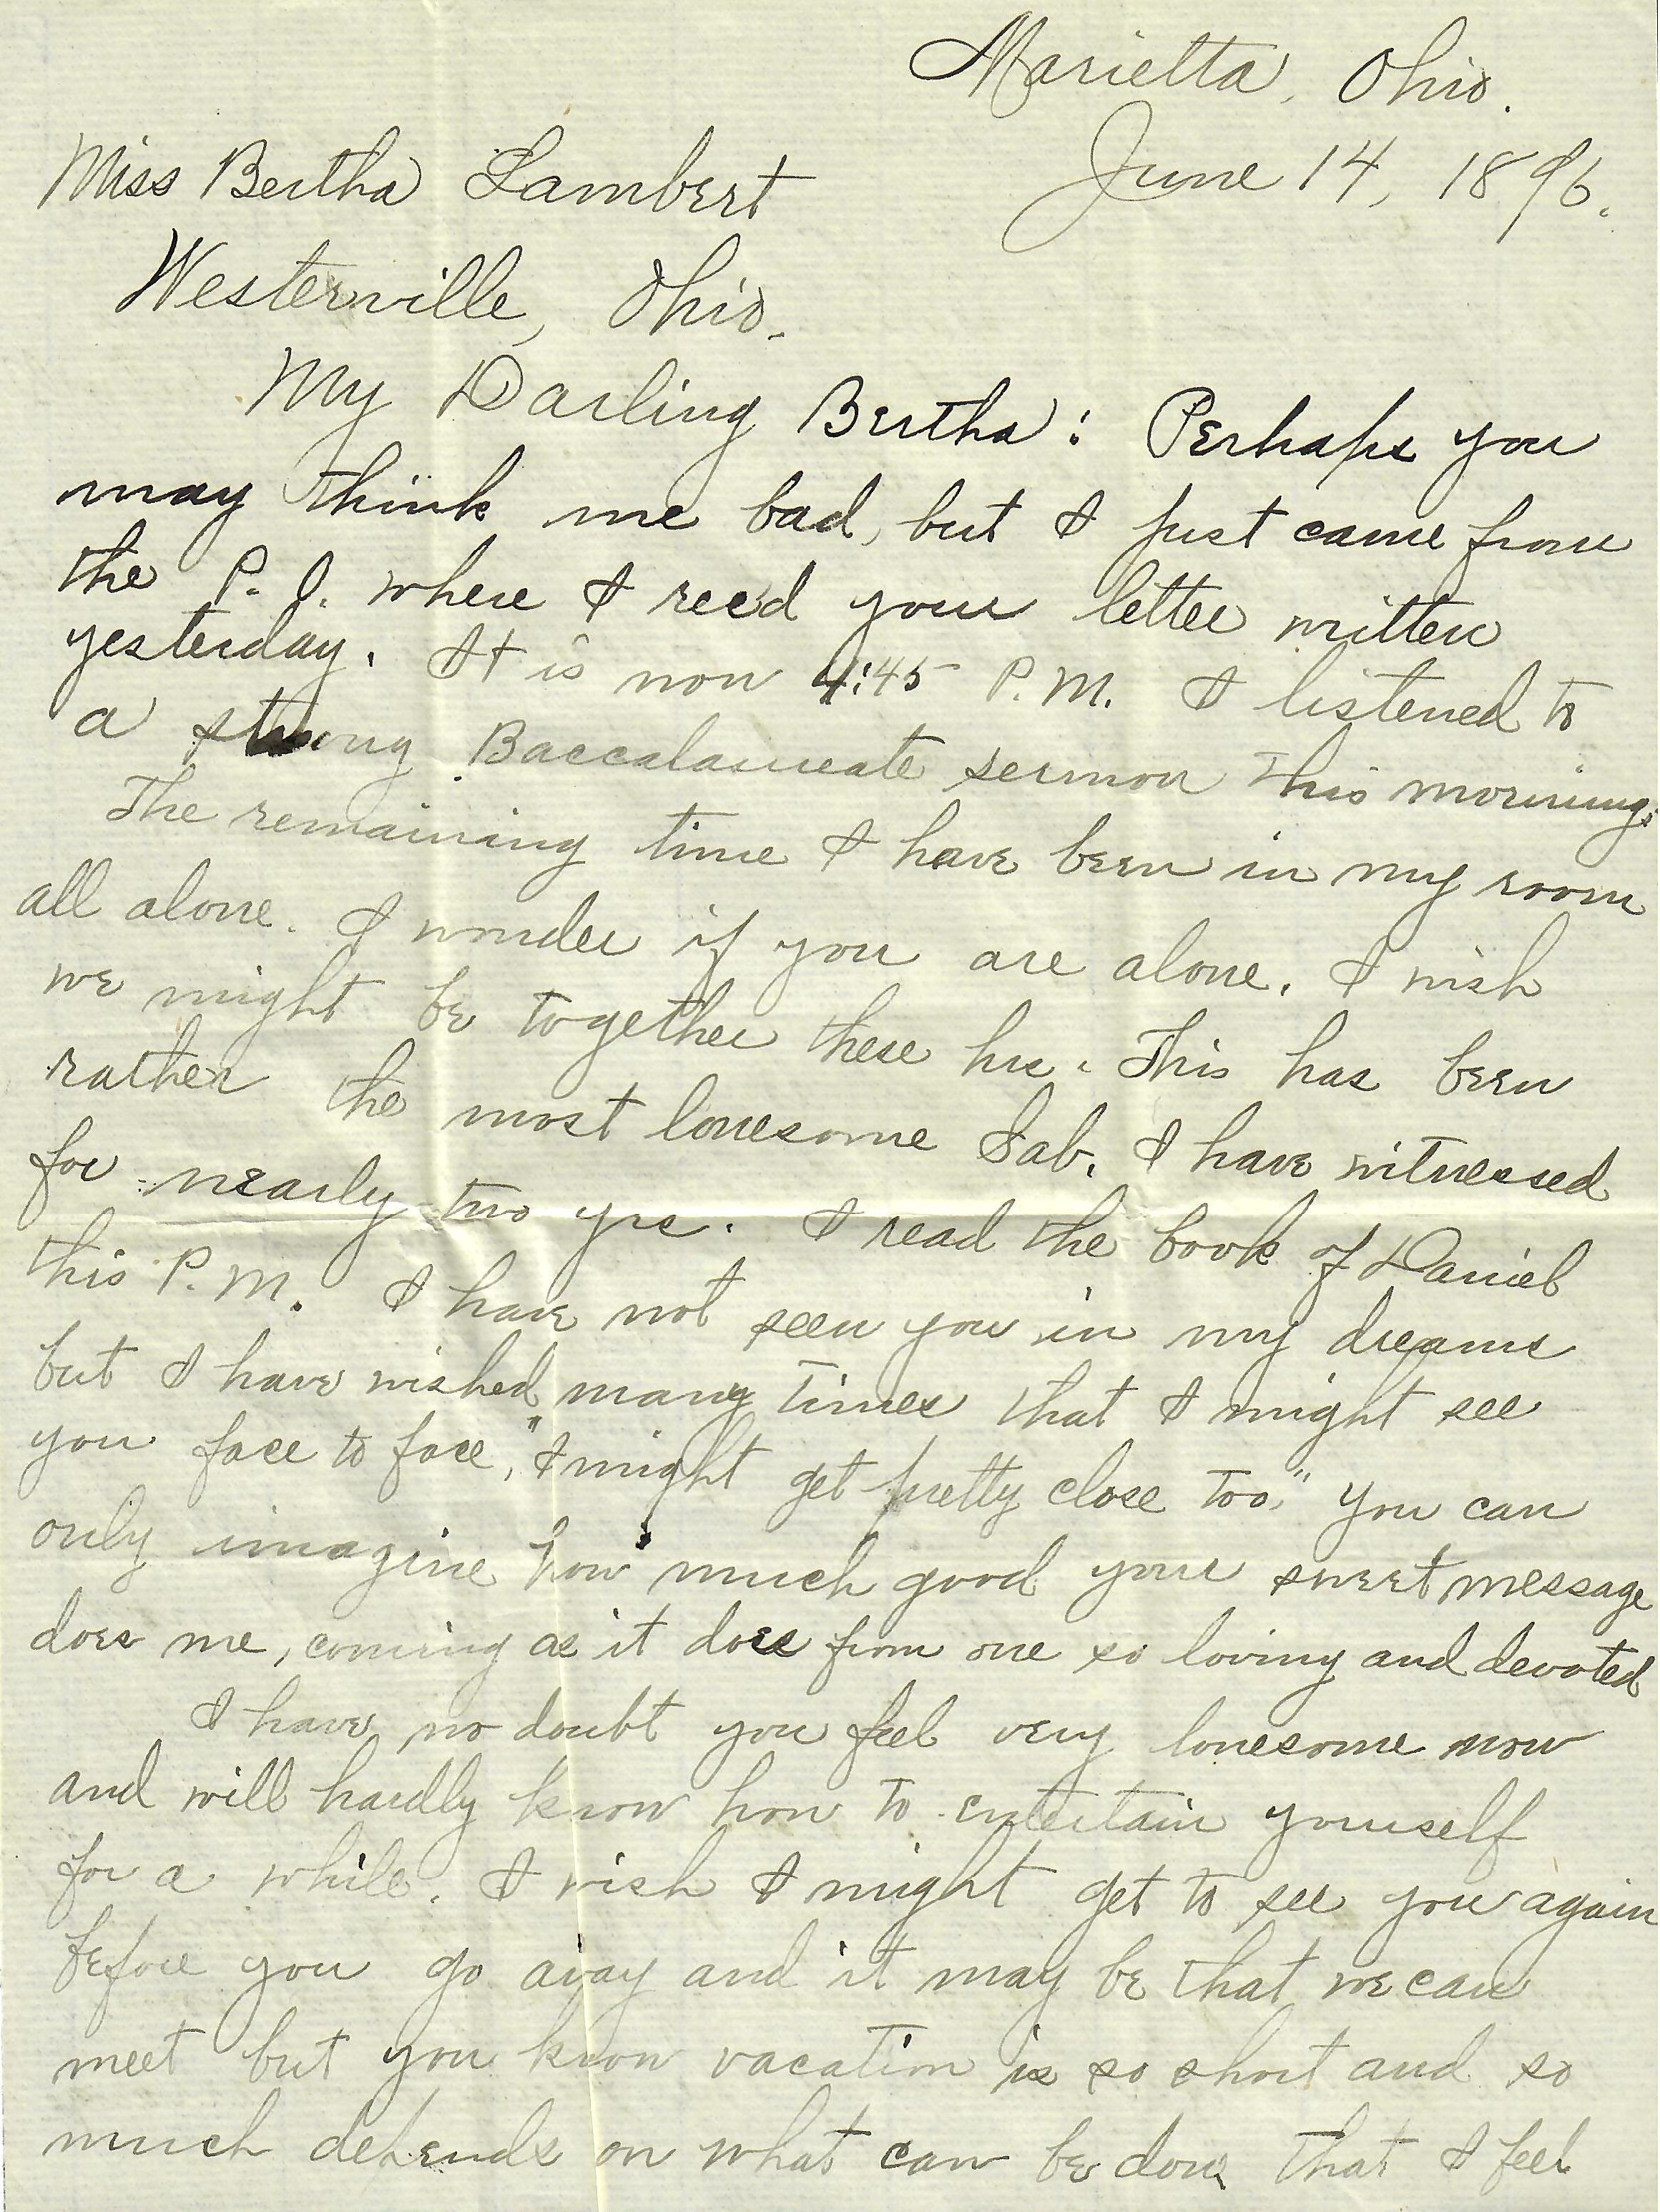 Marietta, Ohio.
June 14, 1896.
Miss Bertha Lambert
Westerville, Ohio.
My Darling Bertha: Perhaps you
may think me bad, but I just came from
the P.O. where I rec'd your letter written
yesterday. It is now 4:45 P.M. I listened to
a strong Baccalaureate sermon this morning.
The remaining time I have been in my room
all alone. I wonder if you are alone. I wish
we might be together these hrs. This has been
rather the most lonesome Sab. I have witnessed
for nearly two yrs. I read the book of Daniel
this P.M. I have not seen you in my dreams
but I have wished many times that I might see
you face to face, "I might get pretty close too," You can
only imagine how much good your sweet message
does me, coming as it does from one so loving and devoted
I have no doubt you feel very lonesome now
and will hardly know how to entertain yourself
for a while. I wish I might get to see you again
before you go away and it may be that we can
meet but you know vacation is so short and so
much depends on what can be done that I feel